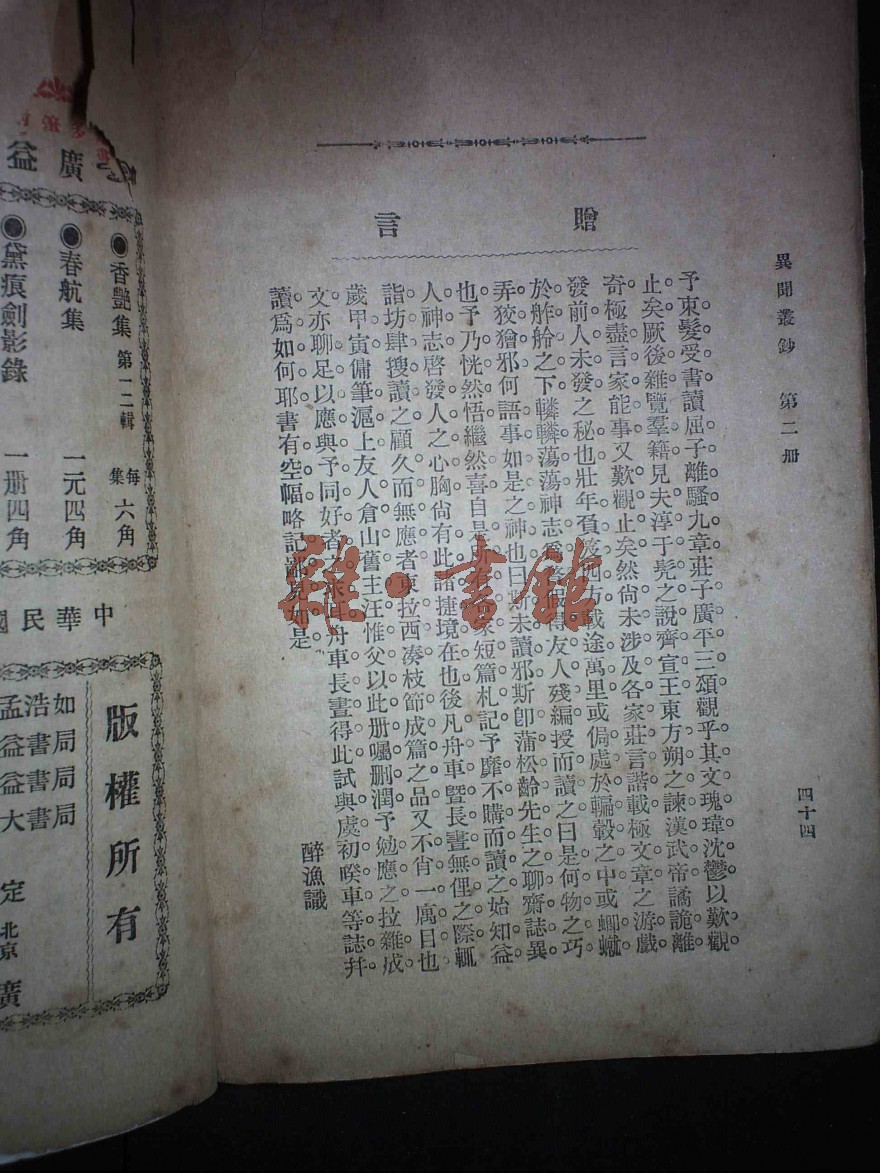 異聞叢鈔 第二册
四十四
贈言
予束髮受書。讀屈子離騷九章。莊子廣平三頌。觀乎其文瑰瑋沈鬱。以歎觀
止矣。厥後雜覽羣籍。見夫淳于髡之說齊宣王。東方朔之諫漢武帝。譎詭離
奇。極盡言家能事。又歎觀止矣。然尙未涉及各家莊言諧載。極文章之游戲。
發前人未發之秘也。壯年負笈四方。載途萬里。或侷處於輻轂之中。或蜷
於舴舲之下。轔轔蕩蕩。神志爲 友人殘編。授而讀之。曰是何物之巧
弄狡獪邪。何語事如是之神也。曰斯未讀邪。斯卽蒲松齡先生之聊齋誌異
也。予乃恍然悟。繼然喜。自是所有 家短篇札記。予靡不購而讀之。始知益
人神志。啓發人之心胸。尙有此諸捷境在也。後凡舟車曁長晝無俚之際。輒
詣坊肆。搜讀之。顧久而無應者。東拉西凑。枝節成篇之品。又不肖一寓目也。
歲甲寅。傭筆滬上。友人倉山舊主汪惟父。以此册囑删潤。予勉應之。拉雜成
文。亦聊足以應與予同好者之 舟車長晝。得此試與虞初暌車等誌幷
讀。爲如何耶。書有空幅。略記 見如是。
醉漁識
廣益
●香艷集 第一二輯 每集 六角
●春航集 一元四角
●黛痕劍影錄 一册四角
中華民國
版權所有
孟浩如
益書局
益書局
大書局
定
北京
廣
雜·書館